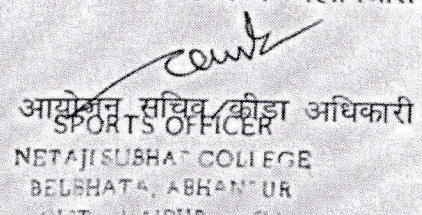 आयोजन सचिव/क्रीड़ा अधिकारी
SPORTS OFFICER
NETAJI SUBHAS COLLEGE
BELBHATA, ABHANPUR